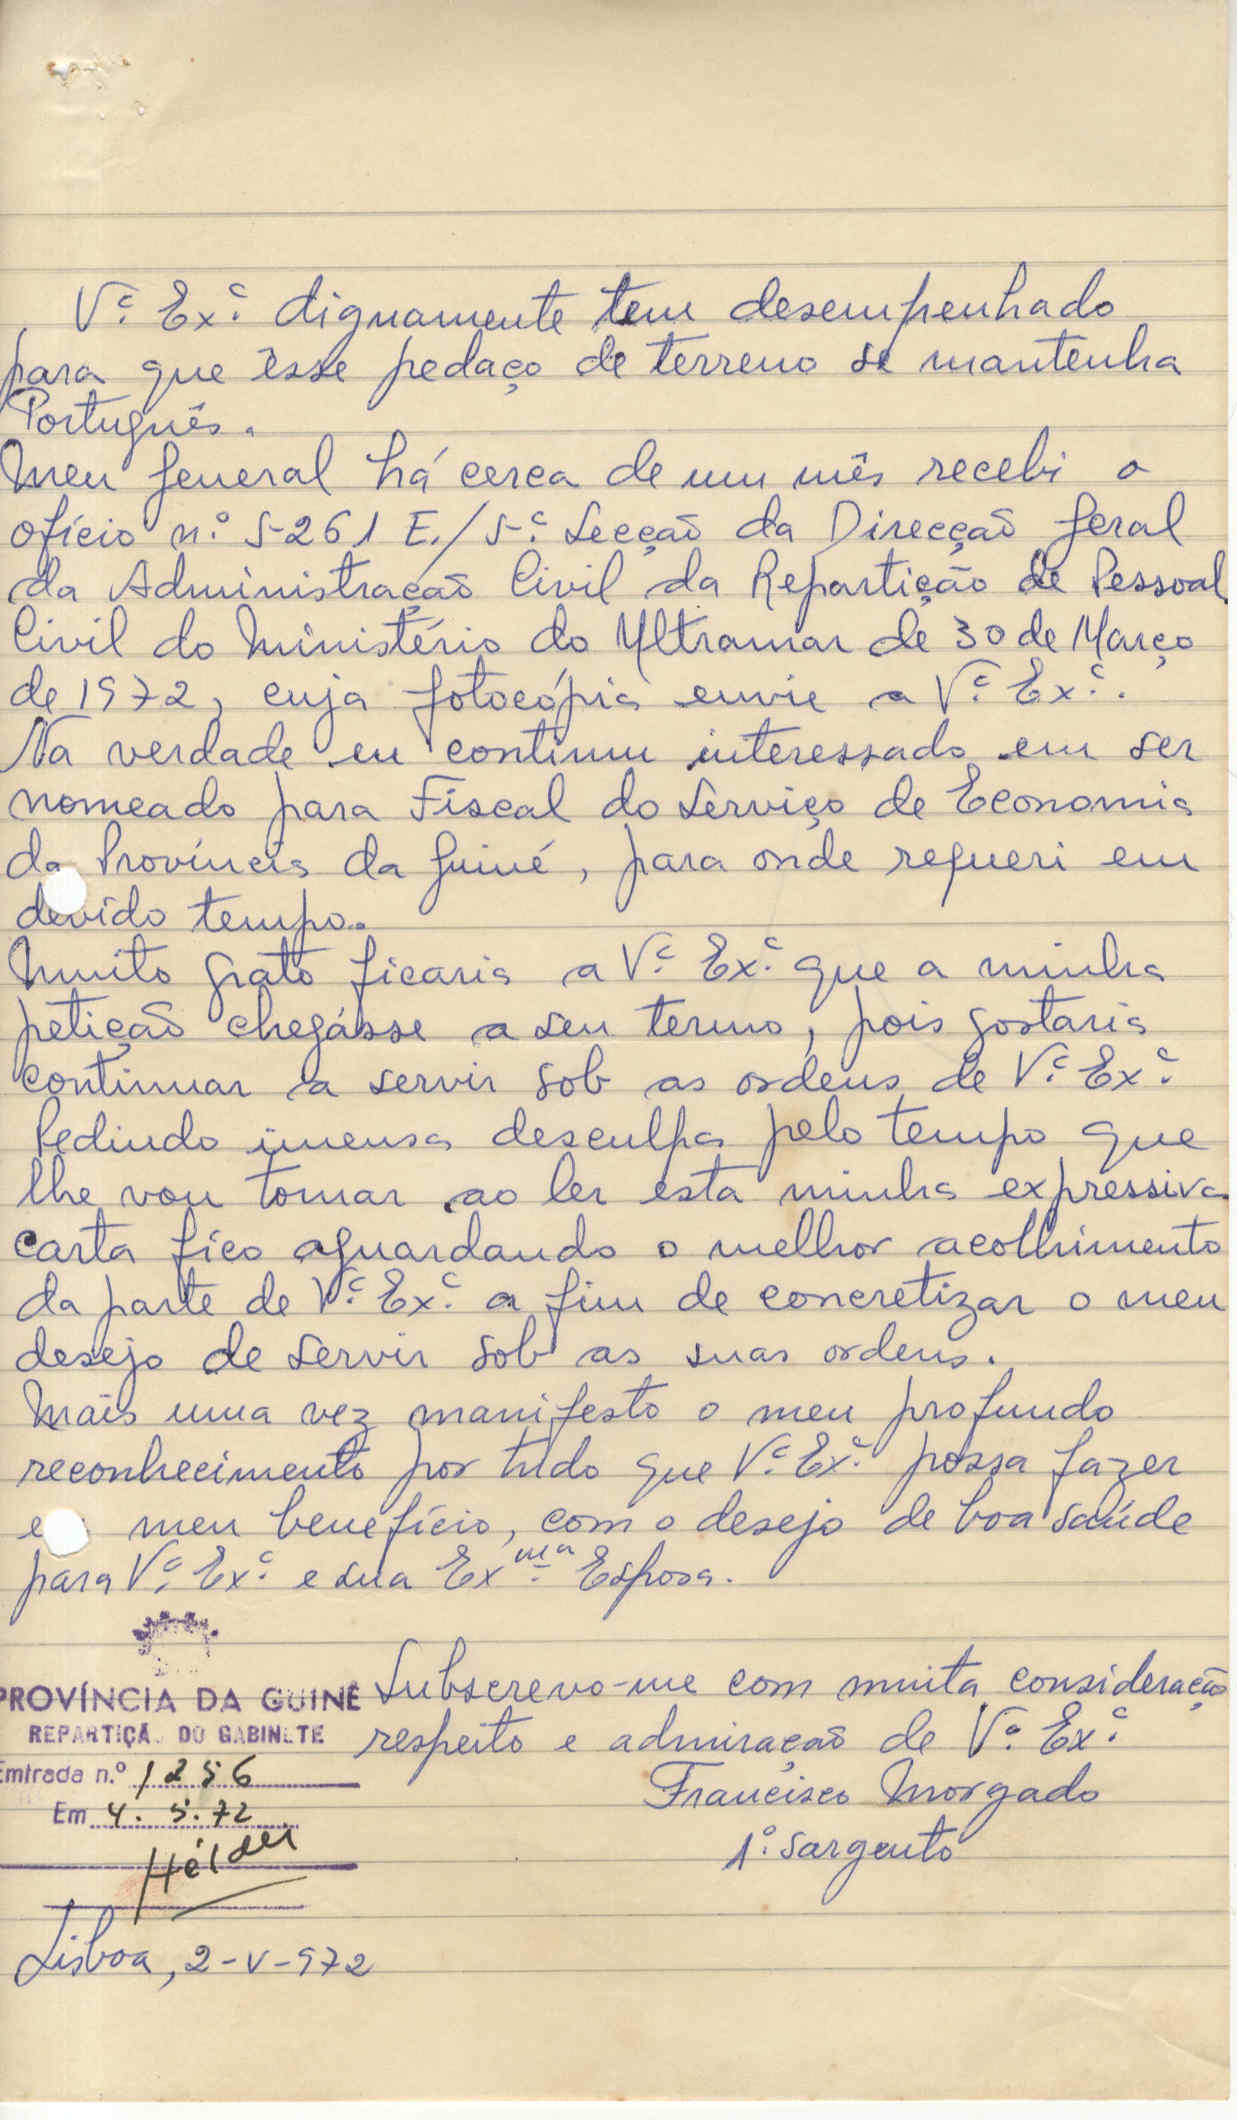 Vª. Exª. dignamente tem desempenhado
para que êsse pedaço de terreno se mantenha
Português.
Meu General há cerca de um mês recebi o
ofício n.º 5261 E./5ª. Secção da Direcção Geral
da Administração Civil da Repartição de Pessoal
Civil do Ministério do Ultramar de 30 de Março
de 1972, cuja fotocópia envie a Vª. Exª.
Na verdade eu continuu interessado em ser
nomeado para Fiscal do Serviço de Economia
da Província da Guiné, para onde requeri em
devido tempo.
Muito grato ficaria a Vª. Exª. que a minha
petição chegásse a seu termo, pois gostaria
continuar a servir sob as ordens de Vª. Exª.
Pedindo imensa desculpa pelo tempo que
lhe vou tomar ao ler esta minha expressiva
carta fico aguardando o melhor acolhimento
da parte de Vª. Exª. a fim de concretizar o meu
desejo de servir sob as suas ordens.
Mais uma vez manifesto o meu profundo
reconhecimento por tudo que Vª. Exª. possa fazer
em meu benefício, com o desejo de boa saúde
para Vª. Exª. e sua Exma. Esposa.
Subscrevo-me com muita consideração
PROVÍNCIA DA GUINÉ
REPARTIÇÃ. DO GABINETE
respeito e admiração de Vª. Exª.
Entrada n.º 1256
Francisco Morgado
Em 4.5.72
1º. Sargento
Hélder
Lisboa, 2-V-972